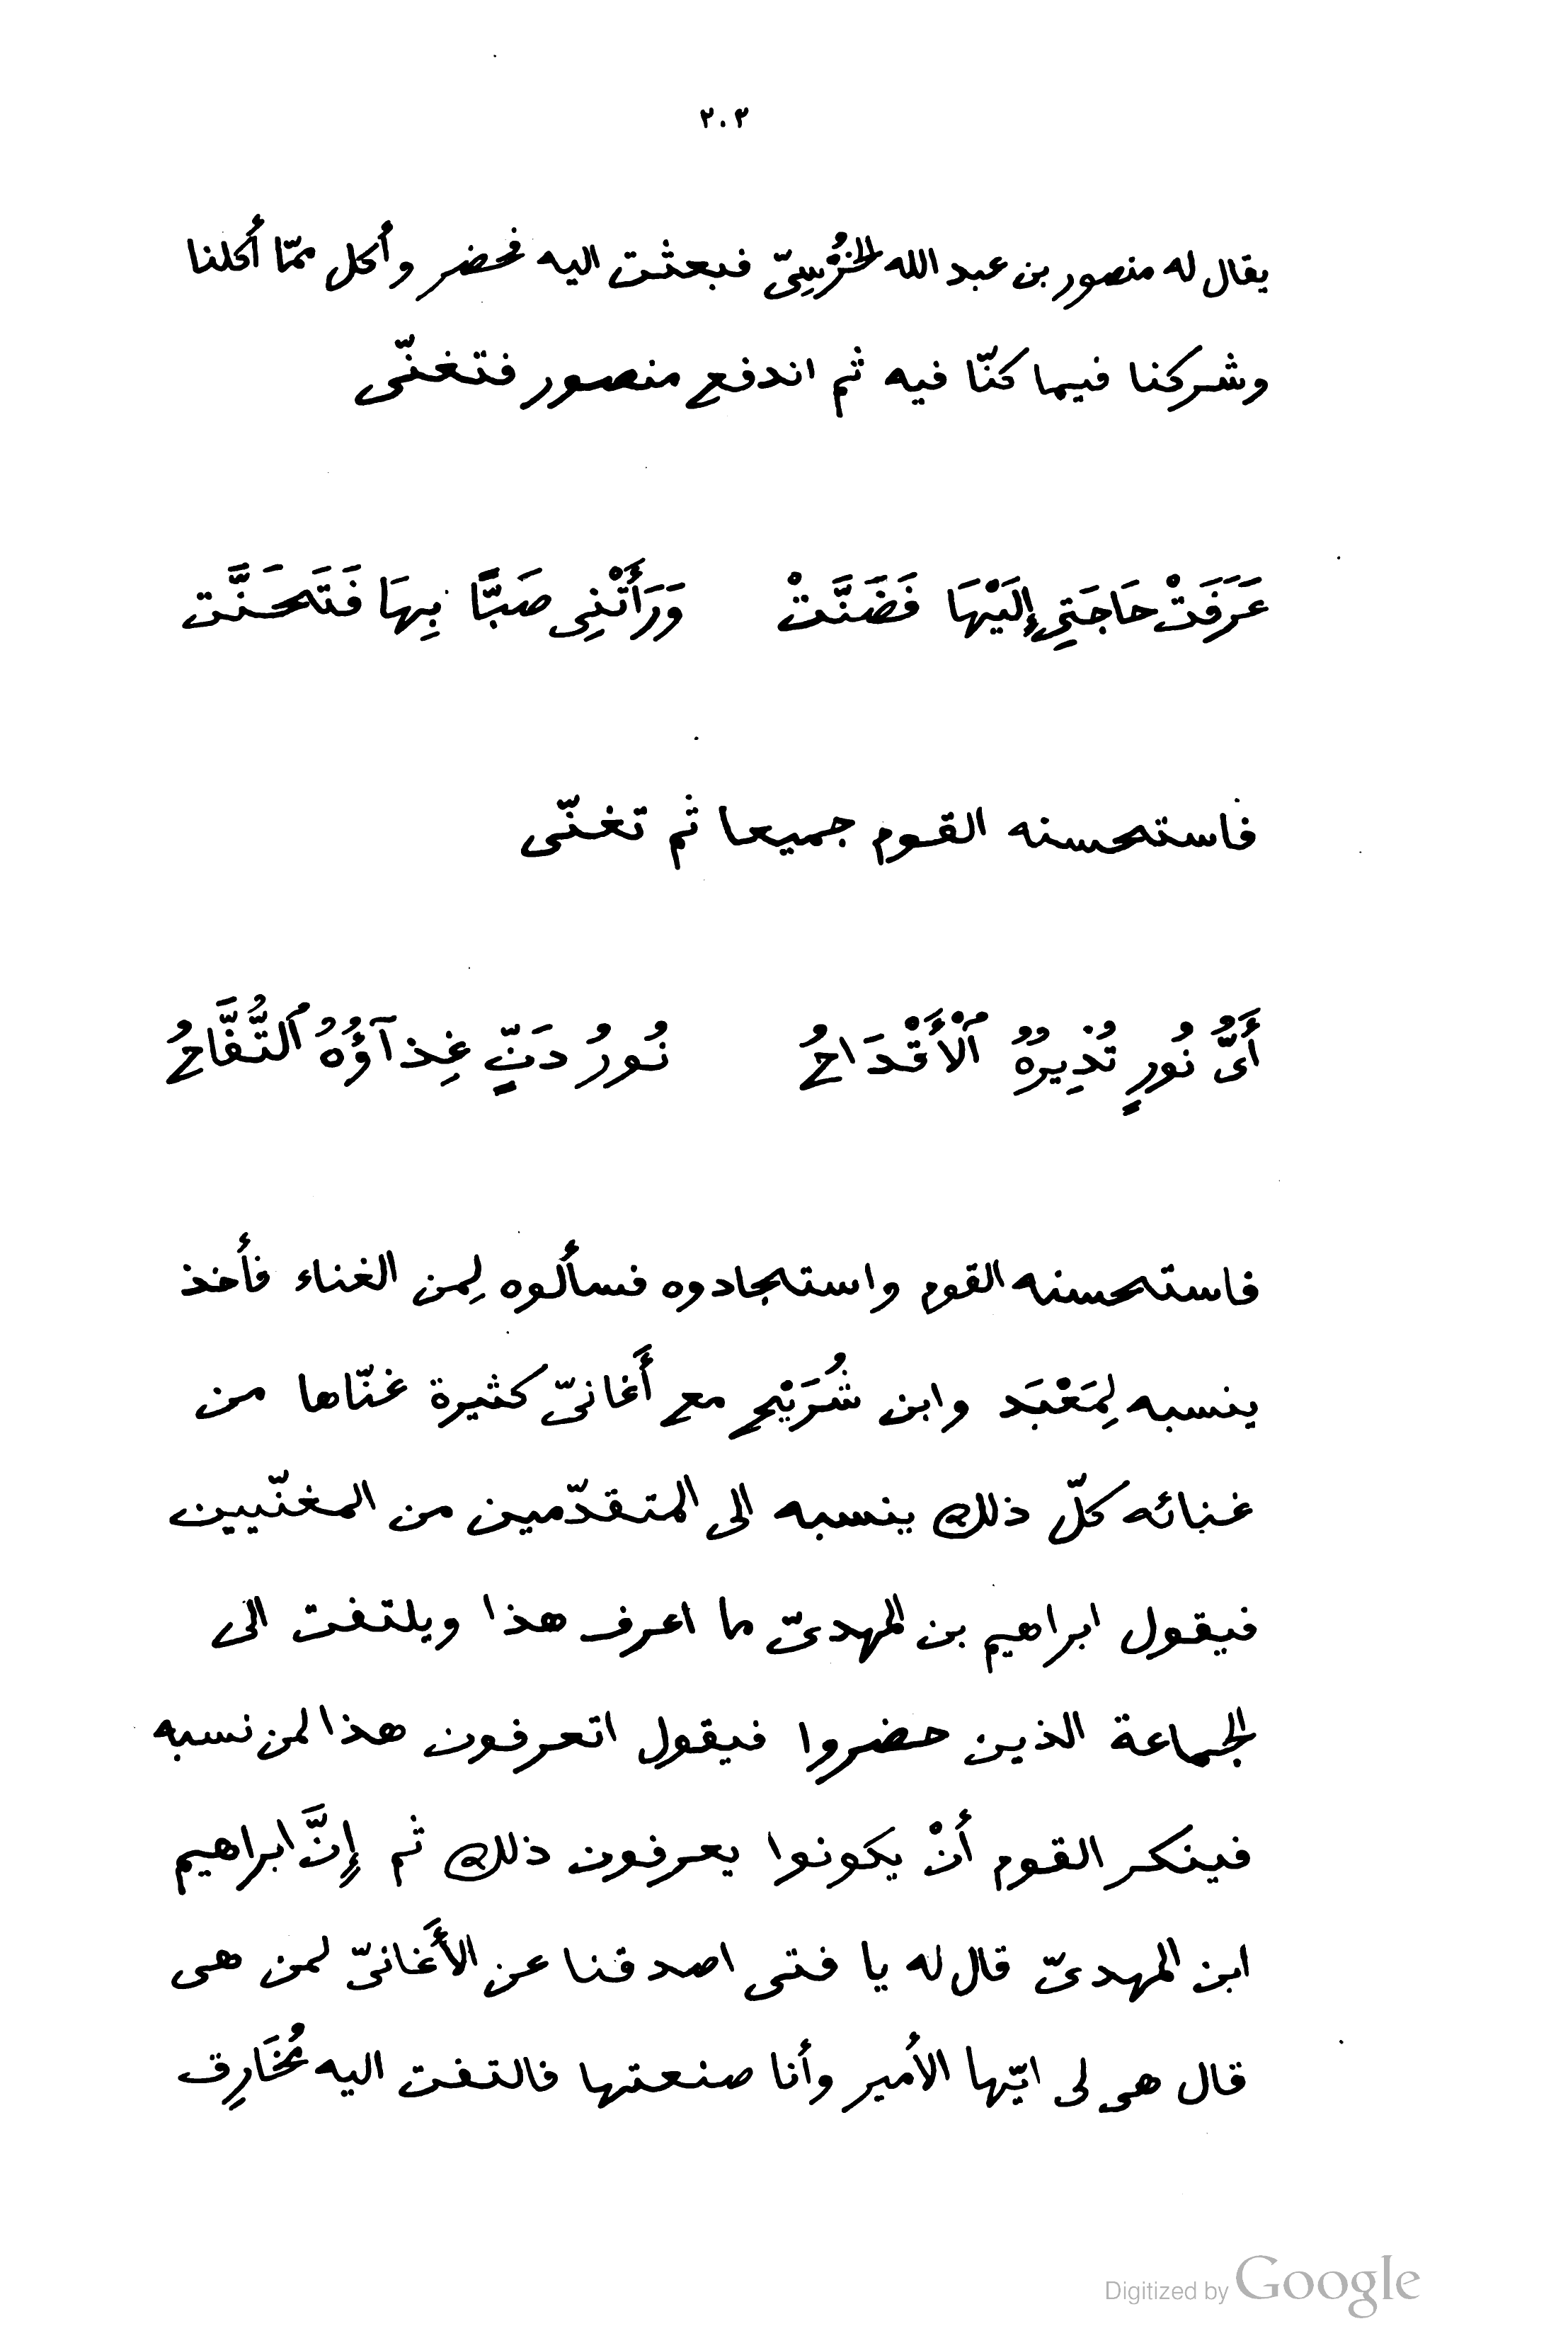 ٢٠٢
يقال له منصور بن عبد الله الخُرْسِىّ فبعثت اليه فحضر وأكل ممّا أكلنا
وشركنا فيما كنّا فيه ثم اندفع منصور فتغنّى
عَرَفَتْ حَاجَتِى إِلَيْهَا فَضَنَّتْ وَرَأَتْنِى صَبًّا بِهَا فَتَحَنَّت
فاستحسنه القوم جميعا ثم تغنّى
أَىُّ نُورٍ تُدِيرُهُ ٱلْأَقْدَاحُ نُورُ دَنٍّ غِذَآؤُهُ ٱلتُّفَّاحُ
فاستحسنه القوم واستجادوه فسألوه لِمن الغناء فأخذ
ينسبه لِمَعْبَد وابن شُرَيْح مع أَغانىّ كثيرة غنّاها من
غنائه كلّ ذلك ينسبه الى المتقدّمين من المغنّيين
فيقول ابراهيم بن المهدىّ ما اعرف هذا ويلتفت الى
الجماعة الذين حضروا فيقول اتعرفون هذا لمن نسبه
فينكر القوم أنْ يكونوا يعرفون ذلك ثم إِنَّ ابراهيم
ابن المهدىّ قال له يا فتى اصدقنا عن الأَغانىّ لمن هى
قال هى لى ايّها الأمير وأنا صنعتها فالتفت اليه مُخَارِق
Digitized by Google